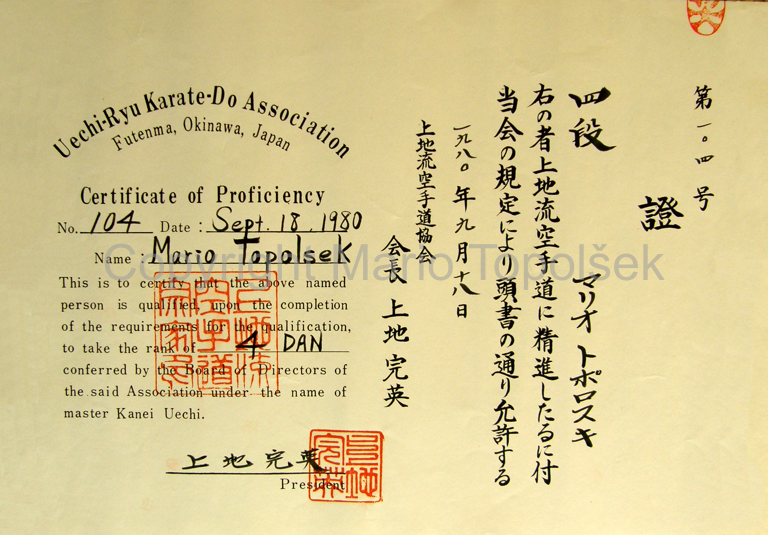 Uechi-Ryu Karate-Do Association
Futenma, Okinawa, Japan
Certificate of Proficiency
No. 104 Date : Sept. 18, 1980
Name : Mario Topolsek
This is to certify that the above named
person is qualified, upon the completion
of the requirements for the qualification,
to take the rank of 4 DAN
conferred by the Board of Directors of
the said Association under the name of
master Kanei Uechi.
上地完英
President
第一〇四号
證
マリオ トポロスキ
四段
右の者上地流空手道に精進したるに付
当会の規定により頭書の通り允許する
一九八〇年九月十八日
上地流空手道協会
会長 上地完英
上地完英
Copyright Mario Topolšek